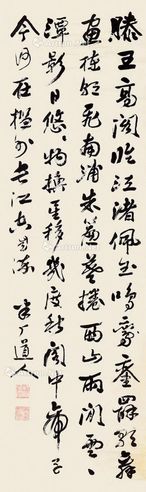 滕王高阁临江渚佩玉鸣鸾罢歌舞
画栋朝飞南浦朱帘暮捲西山雨闲云
潭影日悠悠物换星移几度秋阁中帝子
今何在槛外长江空自流
半丁道人